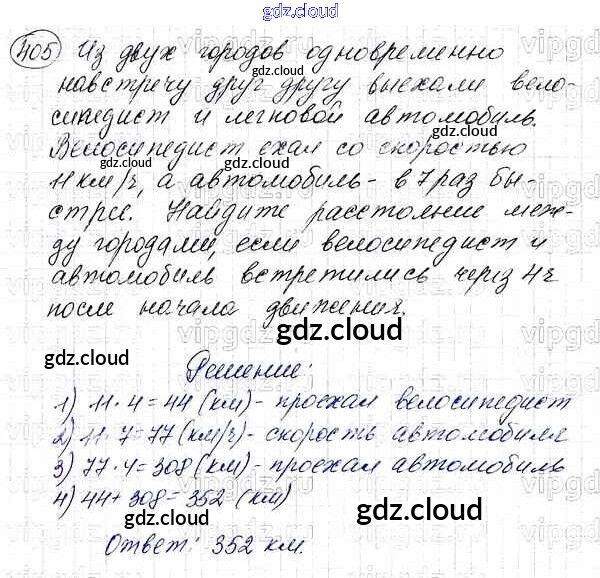 gdz.cloud
405 Из двух городов одновременно
навстречу друг другу выехали вело-
сипедист и легковой автомобиль.
Велосипедист ехал со скоростью
11 км/ч, а автомобиль - в 7 раз бы-
стрее. Найдите расстояние меж-
ду городами, если велосипедист и
автомобиль встретились через 4 ч
после начала движения.
gdz.cloud
gdz.cloud
Решение:
1) 11 · 4 = 44 (км) - проехал велосипедист
2) 11 · 7 = 77 (км/ч) - скорость автомобиля
3) 77 · 4 = 308 (км) - проехал автомобиль
4) 44 + 308 = 352 (км)
gdz.cloud
gdz.cloud
Ответ: 352 км.